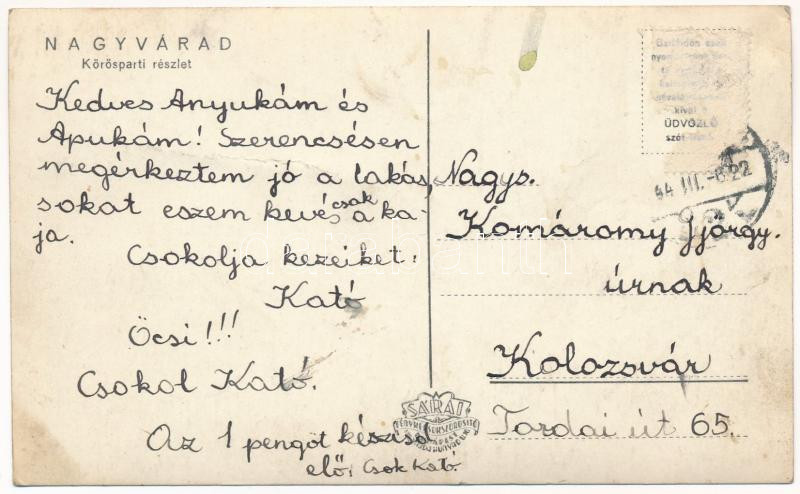 NAGYVÁRAD
Körösparti részlet
Kedves Anyukám és
Apukám! Szerencsésen
megérkeztem jó a lakás,
sokat eszem kevés csak a ka-
ja.
Csokolja kezeiket:
Kató
Öcsi!!!
Csokol Kató.
Az 1 pengőt készisd
elő: Csok Kató.
ÜDVÖZLŐ
44 III. 22
Nagys.
Komáromy György.
úrnak
Kolozsvár
Tordai út 65.
SÁRAI